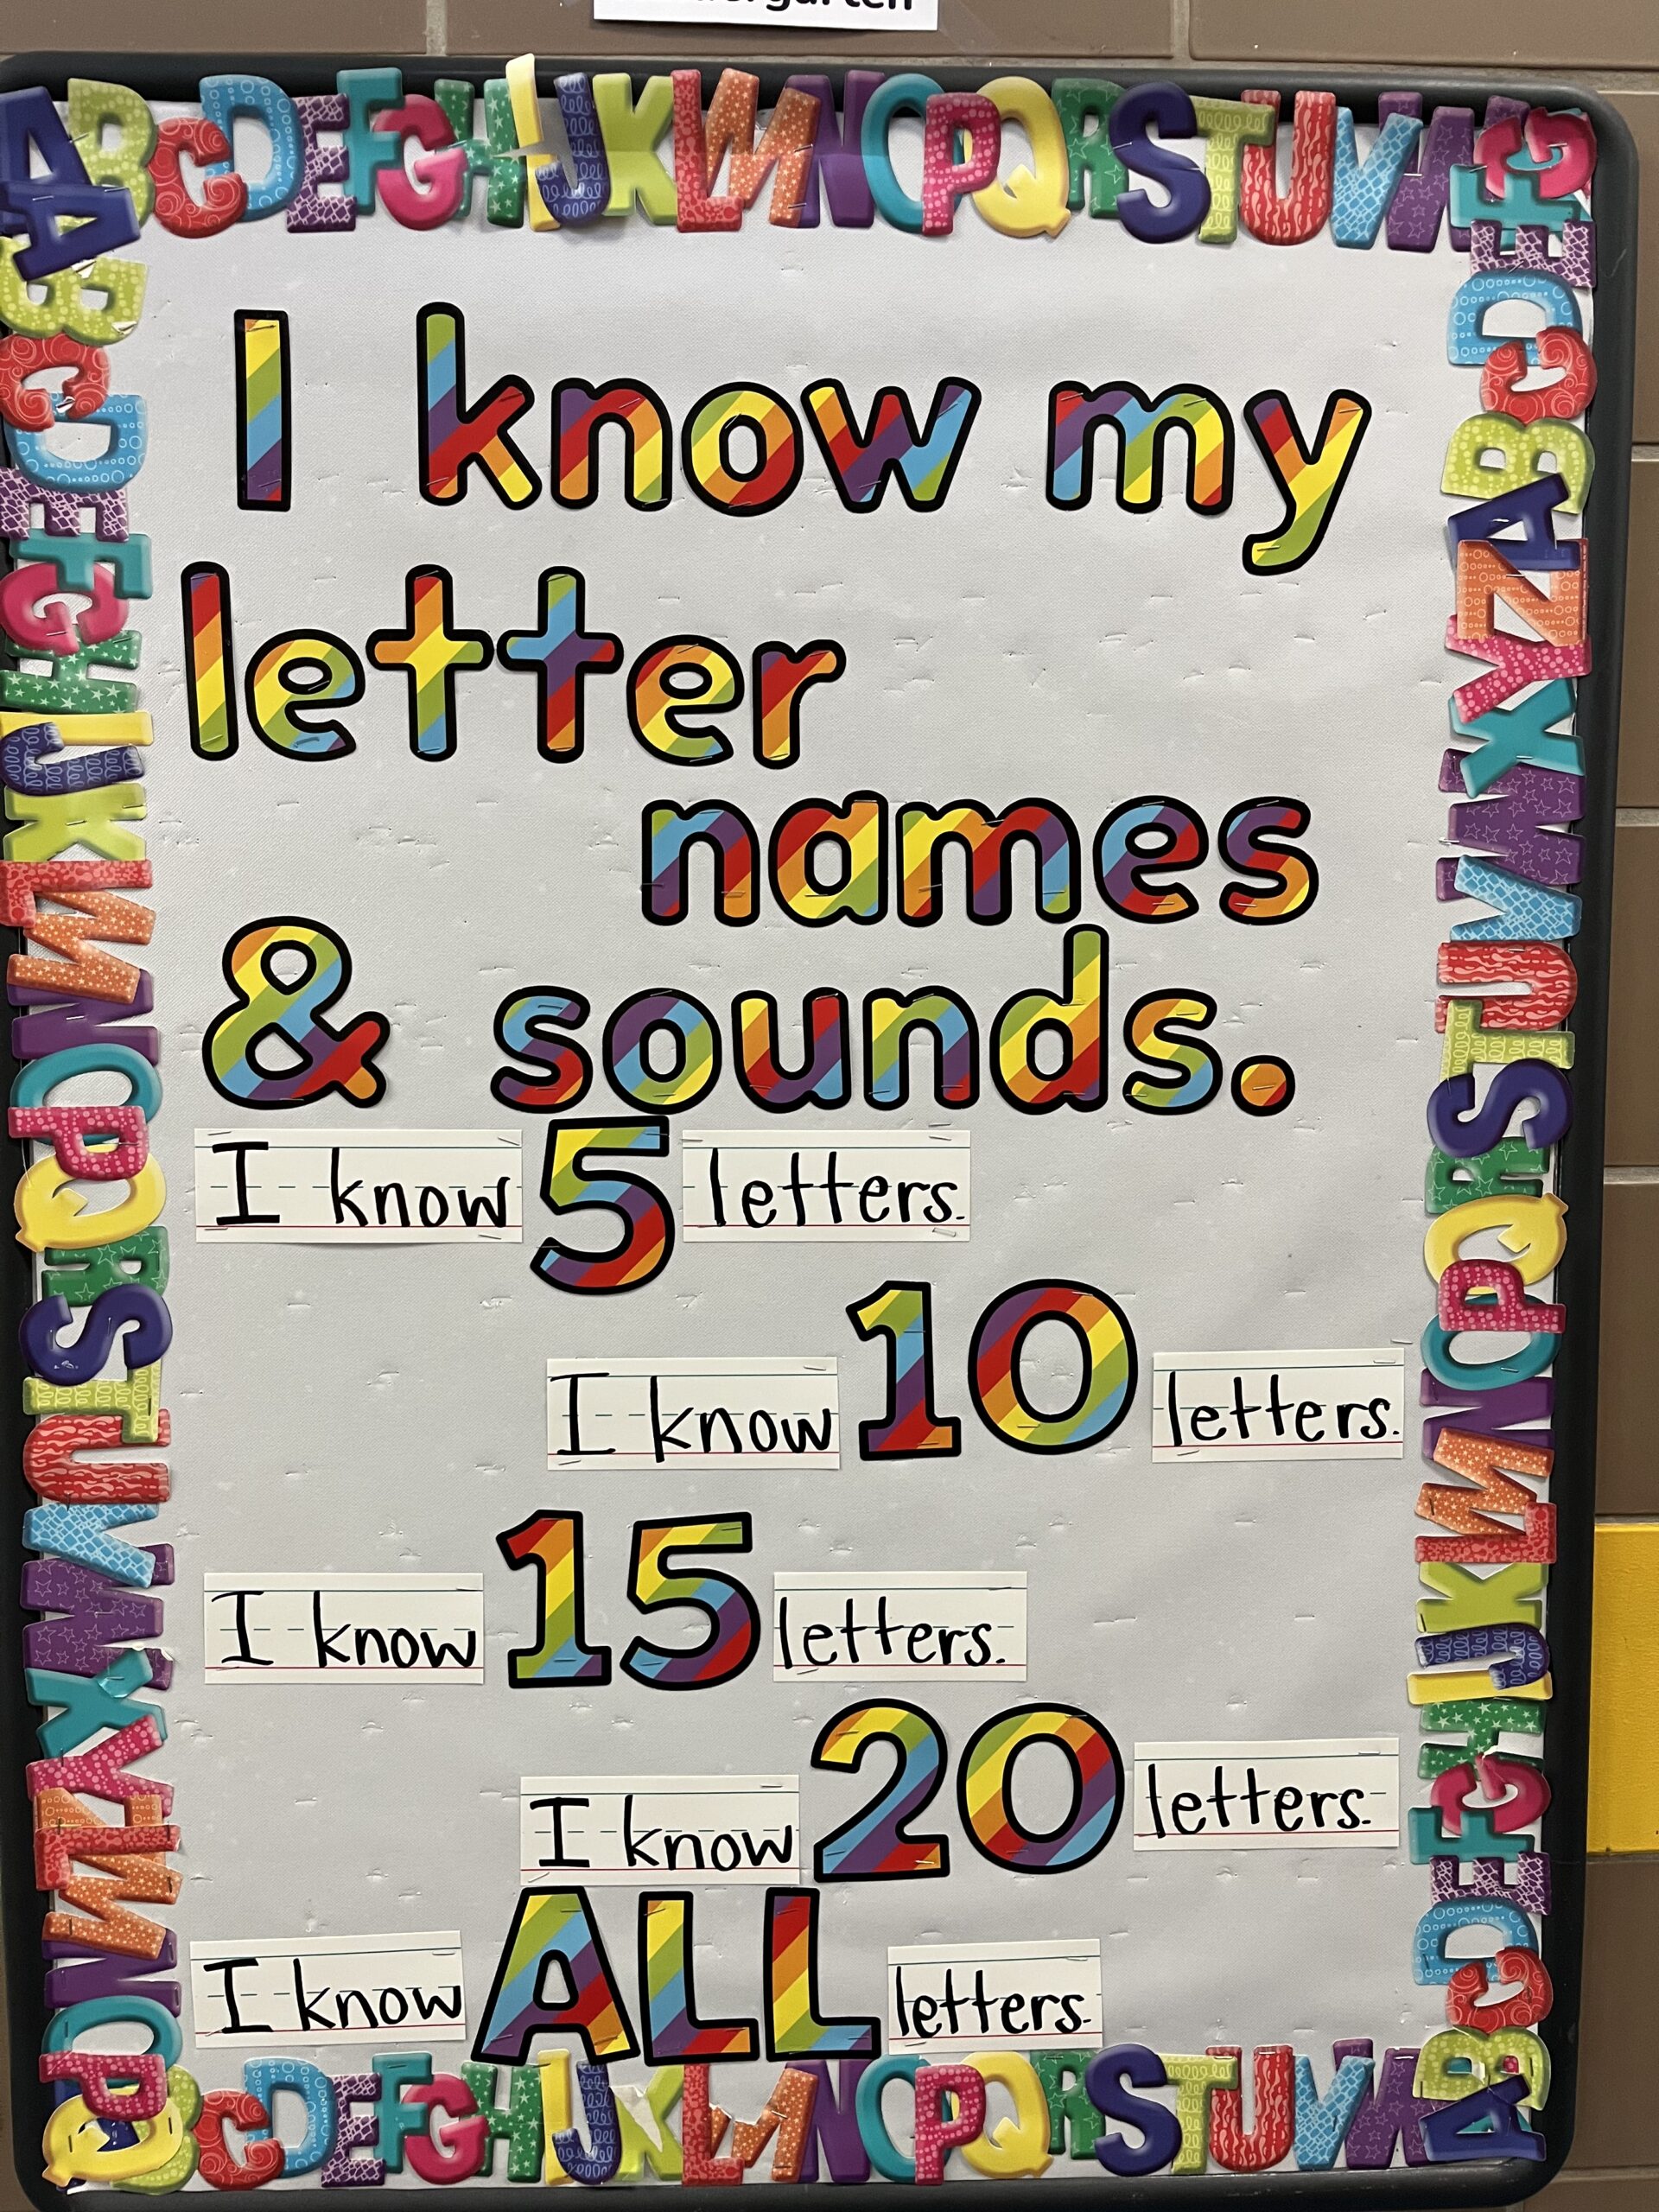 I know my
letter
names
& sounds.
I know 5 letters.
I know 10 letters.
I know 15 letters.
I know 20 letters.
I know ALL letters.